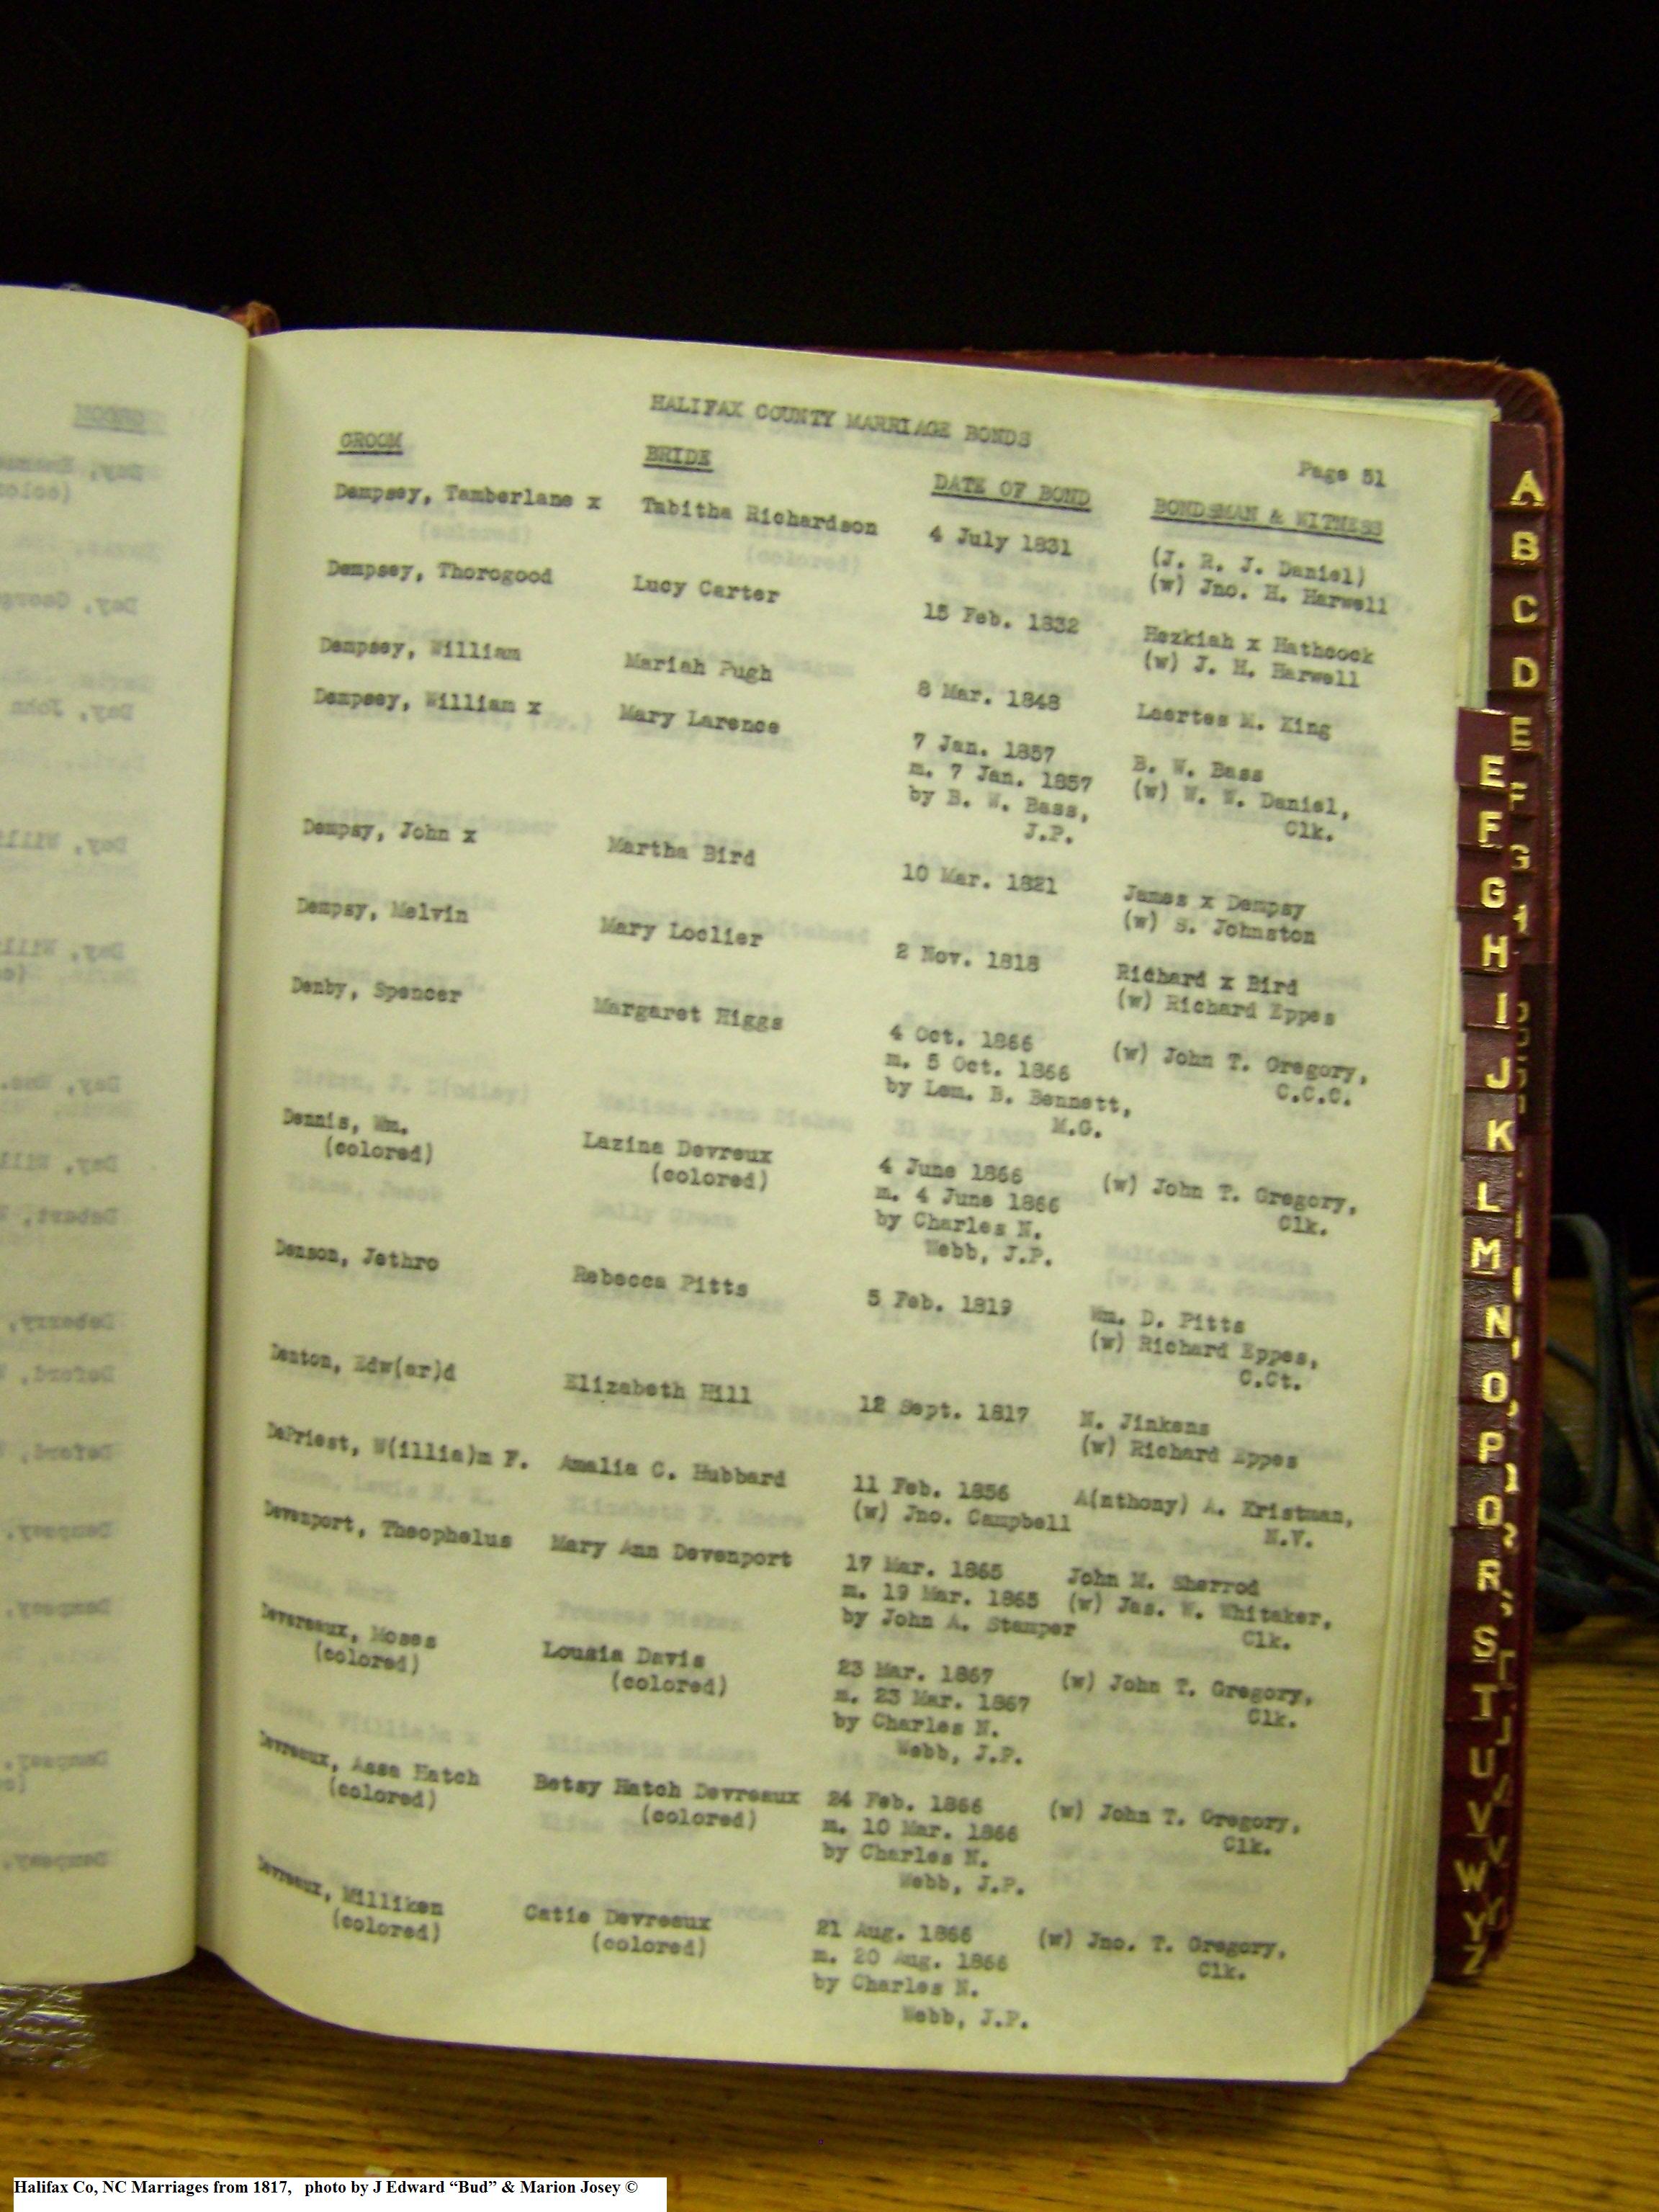 HALIFAX COUNTY MARRIAGE BONDS
Page 51
GROOM BRIDE DATE OF BOND BONDSMAN & WITNESS
Dempsey, Tamberlane x Tabitha Richardson 4 July 1831 (J. R. J. Daniel)
(w) Jno. H. Harwell
Dempsey, Thorogood Lucy Carter 15 Feb. 1832 Hezkiah x Hathcock
(w) J. H. Harwell
Dempsey, William Mariah Pugh 8 Mar. 1848 Laertes M. King
Dempsey, William x Mary Larence 7 Jan. 1857 B. W. Bass
m. 7 Jan. 1857 (w) W. W. Daniel,
by B. W. Bass, Clk.
J.P.
Dempsy, John x Martha Bird 10 Mar. 1821 James x Dempsy
(w) S. Johnston
Dempsy, Melvin Mary Loclier 2 Nov. 1818 Richard x Bird
(w) Richard Eppes
Denby, Spencer Margaret Higgs 4 Oct. 1866 (w) John T. Gregory,
m. 5 Oct. 1866 C.C.C.
by Lem. B. Bennett,
M.G.
Dennis, Wm. Lazina Devreux 4 June 1866 (w) John T. Gregory,
(colored) (colored) m. 4 June 1866 Clk.
by Charles N.
Webb, J.P.
Denson, Jethro Rebecca Pitts 5 Feb. 1819 Wm. D. Pitts
(w) Richard Eppes,
C.Ct.
Denton, Edw(ar)d Elizabeth Hill 12 Sept. 1817 N. Jinkens
(w) Richard Eppes
DePriest, W(illia)m F. Amalia C. Hubbard 11 Feb. 1856 A(nthony) A. Kristman,
(w) Jno. Campbell N.V.
Devenport, Theophelus Mary Ann Devenport 17 Mar. 1865 John M. Sherrod
m. 19 Mar. 1865 (w) Jas. W. Whitaker,
by John A. Stamper Clk.
Devereaux, Moses Lousia Davis 23 Mar. 1867 (w) John T. Gregory,
(colored) (colored) m. 23 Mar. 1867 Clk.
by Charles N.
Webb, J.P.
Devreaux, Assa Hatch Betsy Hatch Devreaux 24 Feb. 1866 (w) John T. Gregory,
(colored) (colored) m. 10 Mar. 1866 Clk.
by Charles N.
Webb, J.P.
Devreaux, Milliken Catie Devreaux 21 Aug. 1866 (w) Jno. T. Gregory,
(colored) (colored) m. 20 Aug. 1866 Clk.
by Charles N.
Webb, J.P.
A
B
C
D
E
F
G
E
F
G
H
I
J
K
L
M
N
O
P
Q
R
S
T
U
V
W
Y
Z
Halifax Co, NC Marriages from 1817, photo by J Edward “Bud” & Marion Josey ©